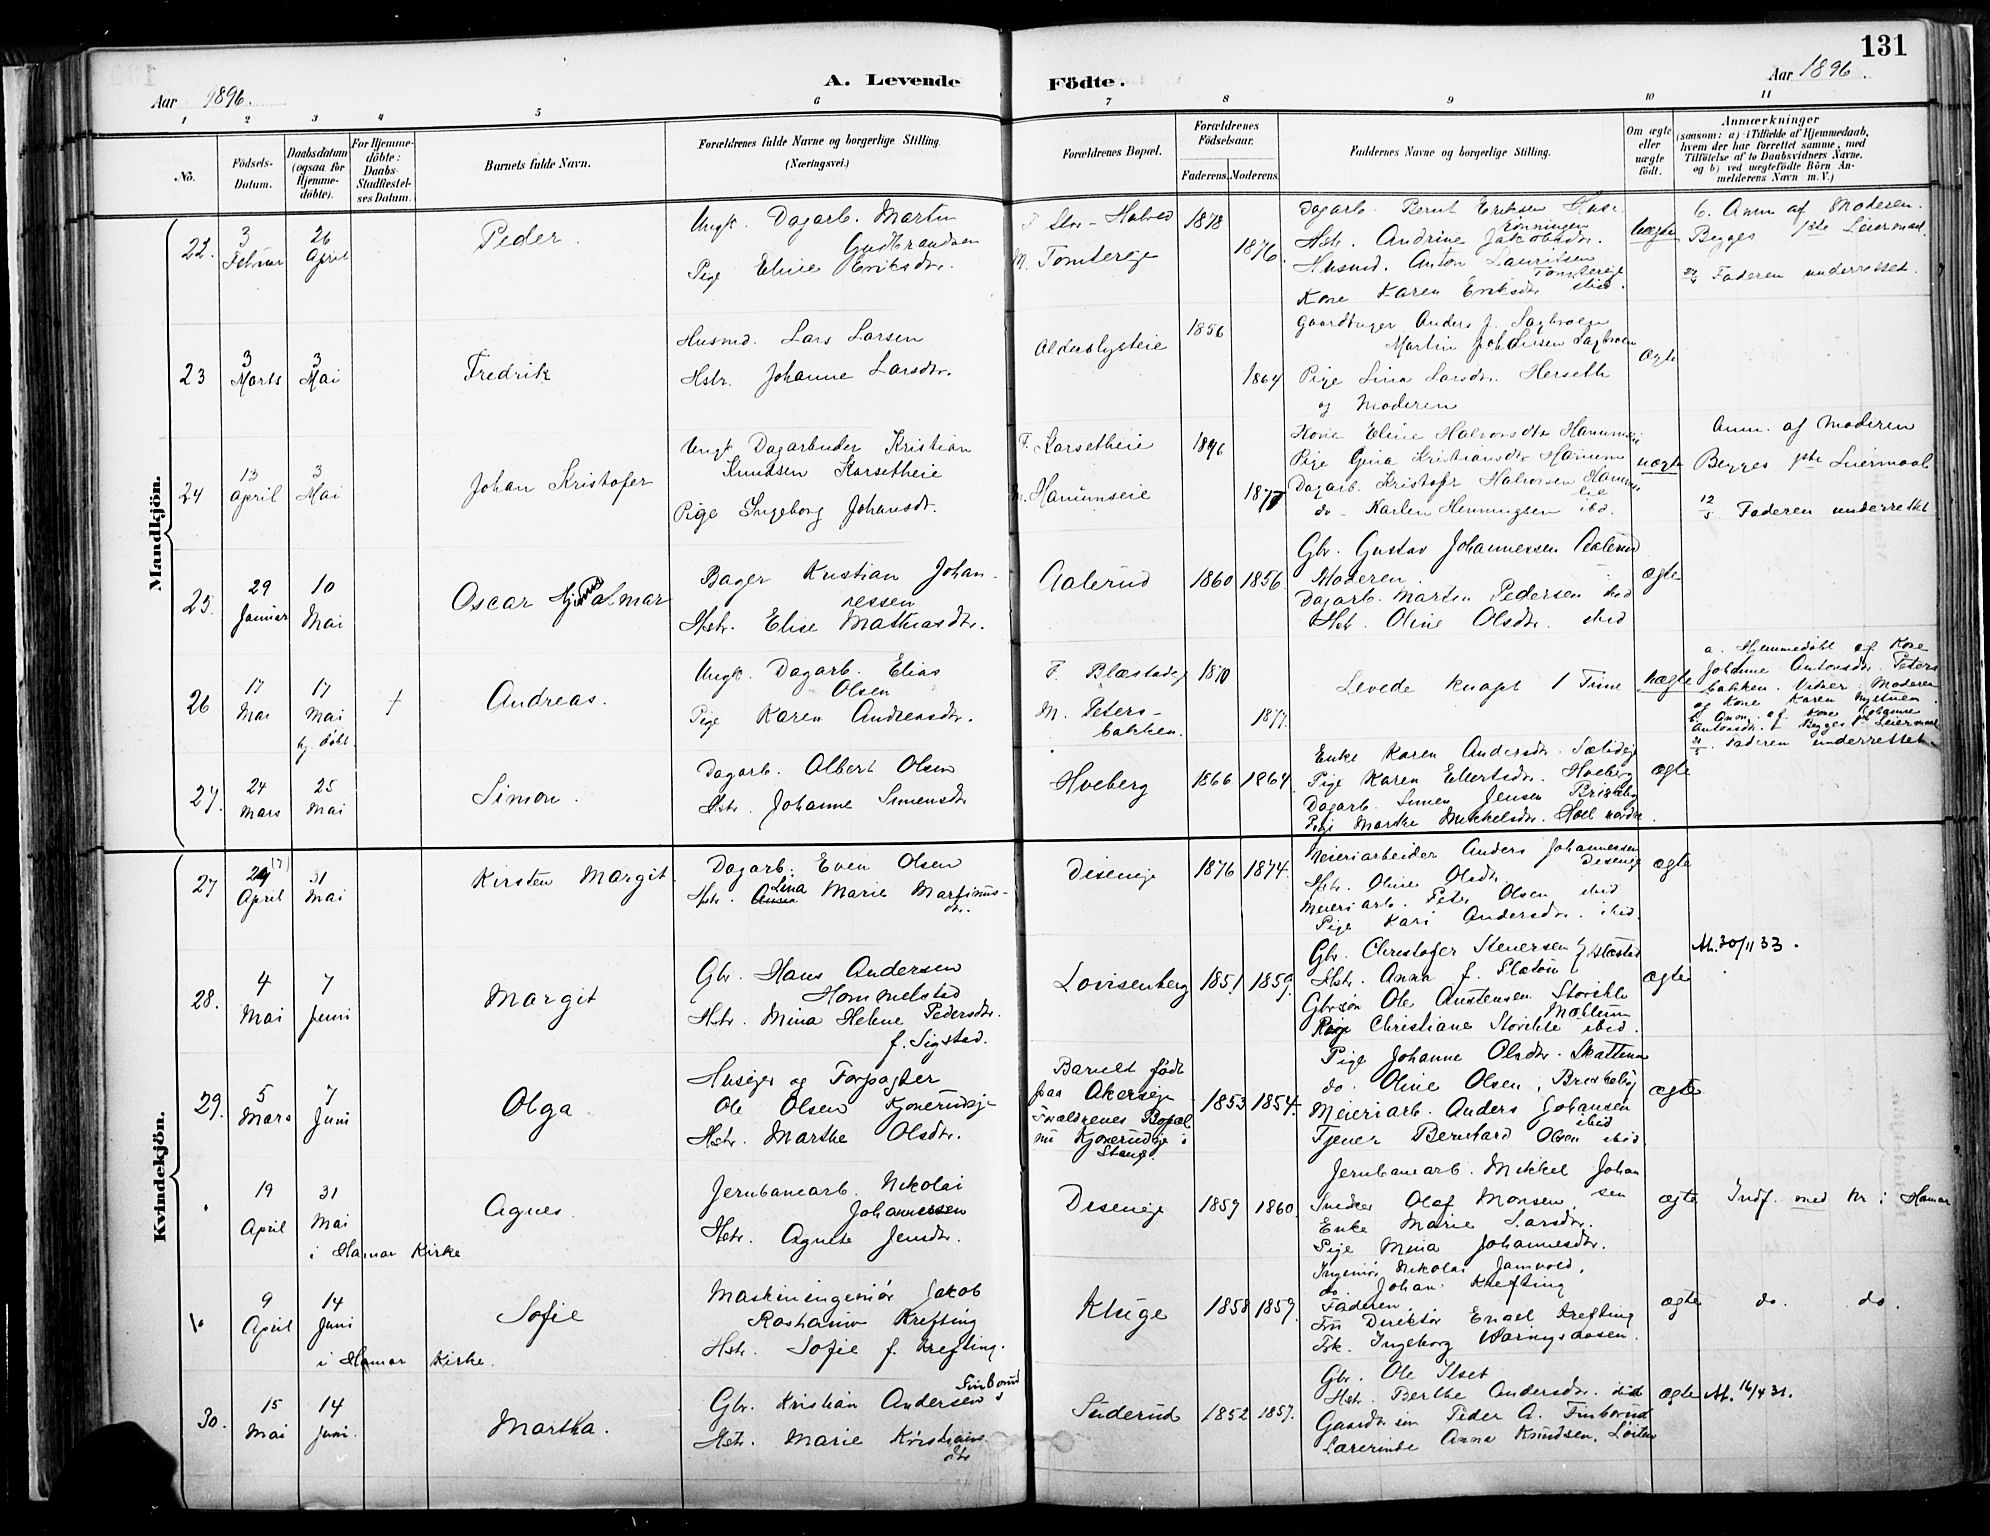 131
Aar 1896.
A. Levende Födte.
Aar 1896.
1 2 3 4 5 6 7 8 9 10 11
No.
Födsels-Datum.
Daabsdatum (ogsaa for Hjemmedöbte).
For Hjemmedöbte: Daabs Stadfæstelses Datum.
Barnets fulde Navn.
Forældrenes fulde Navne og borgerlige Stilling.
(Næringsvei.)
Forældrenes Bopæl.
Forældrenes Födselsaar.
Faderens. Moderens.
Faddernes Navne og borgerlige Stilling.
Om ægte eller uægte födt.
Anmærkninger
(saasom: a) i Tilfælde af Hjemmedaab, hvem der har forrettet samme, med Tilföielse af to Daabsvidners Navne. og b) ved uægtefödte Börn Anmelderens Navn m. V.)
Mandkjön.
22. 3 Februar
26 April
Peder.
Ungk. Dagarb. Martin
Gudbrandsen
Pige Eline Eriksdtr.
M. Tomtereie
1878
1876.
Dagarb. Bernt Eriksen
Hstr. Andrine Jakobsdtr.
Husmd. Anton Lauritsen
Kone Karen Eriksdtr ibid.
uægte
b. Anm af Moderen.
Begges 1ste Leiermaal
Faderen underrettet.
23
3 Marts
3 Mai
Fredrik
Husmd. Lars Larsen
Hstr. Johanne Larsdtr.
1856
1864
Gaardbruger Anders
Pige Lina Larsdtr. Herseth
og Moderen
ægte
24
13 April
3 Mai
Johan Kristofer
Ungk Dagarbeider Kristian
Knudsen Korsetheie
Pige Ingeborg Johansdtr.
F. Korsetheie
1896
1877
Kone Eline Halvorsdtr
Pige Gina Kristiansdtr
Dagarb. Kristofer Halvorsen
do Karlen Henningsen ibd.
uægte
Anm. af Moderen
Begges 1ste Leiermaal
12/5 Faderen underrettet
25.
29 Januar
10 Mai
Oscar Hjalmar
Bager Kristian Johannessen
Hstr. Elise Mathiasdtr.
Aalerud
1860 1856
Gbr. Gustav Johannessen Aalerud
Moderen.
Dagarb. Martin Pedersen ibid
Hstr. Oline Olsdtr. ibid
ægte
26
17 Mai
17 Mai
hj. döbt
+
Andreas.
Ungk. Dagarb. Elias
Olsen
Pige Karen Andreasdtr.
F. Blæstadeie
M. Petersbakken.
1870
1877.
Levede knapt 1 Time
uægte
a. Hjemmedöbt af Kone
Johanne Antonsdtr. Petersbakken. Vidner: Moderen
og Kone Karen
b. Anm. af Kone Johanne
Antonsdtr. Begges 1ste Leiermaal
Faderen underrettet.
27.
24 Mars
25 Mai
Simon.
Dagarb. Albert Olsen
Hstr. Johanne Simensdtr
Hveberg
1866 1864.
Enke Karen Andersdtr.
Pige Karen Ellertsdtr. Hveberg
Dagarb. Simen Jensen
Pige Marthe Mikkelsdtr.
ægte
Kvindekjön.
27
April
31 Mai
Kirsten Margit.
Dagarb. Even Olsen
Hstr. Lina Marie Martinusdtr.
Diseneie
1876 1874.
Meieriarbeider Anders Johannessen
Diseneie
Hstr. Oline Olsdtr. ibid
Meieriarb. Peter Olsen
Pige Kari Andersdtr. ibid.
ægte
28.
4 Mai
7 Juni
Margit
Gbr. Hans Andersen
Hommelstad
Hstr. Mina Helene Pedersdtr.
f. Sigstad.
Lovisenberg
1851 1859.
Gbr. Christofer Stenersen
Hstr. Anna f.
Gbr.sön Ole Austensen
Pige Christiane ibid.
ægte
30/11 33.
29.
5 Mars
7 Juni
Olga
Huseier og Forpagter
Ole Olsen Kjonerudeie
Hstr. Marthe Olsdtr.
Barnet födt
paa Akerseie
Forældrenes Bopæl
nu Kjonerudeie i
Stange.
1853 1854.
Pige Johanne Olsdtr.
do. Oline Olsen,
Meieriarb. Anders Johansen ibid
Tjener Bernhard Olsen ibid.
ægte
19 April
31 Mai
i Hamar Kirke
Agnes.
Jernbanearb. Nikolai
Johannessen
Hstr. Agnete Jensdtr.
Diseneie
1859 1860.
Jernbanearb. Mikkel Johansen
Snedker Olaf Monsen
Enke Marie Larsdtr.
Pige Mina Johannesdtr.
ægte
Indf. med Nr i Hamar
9 April
14 Juni
i Hamar Kirke.
Sofie
Maskiningeniör Jakob
Krefting
Hstr. Sofie f. Krefting.
Kluge
1858 1859.
Ingeniör Nikolai
do. Johan Krefting
Faderen.
Fru Direktör Krefting
Frk. Ingeborg
ægte
do. do.
30.
15 Mai
14 Juni.
Martha.
Gbr. Kristian Andersen Finborud
Hstr. Marie Kristiansdtr
Suderud
1852 1857.
Gbr. Ole Ilset
Hstr. Berthe Andersdtr. ibid
Gaardbr sön Peder A. Finborud
Lærerinde Anna Knudsen, Löiten
ægte
16/4 31.